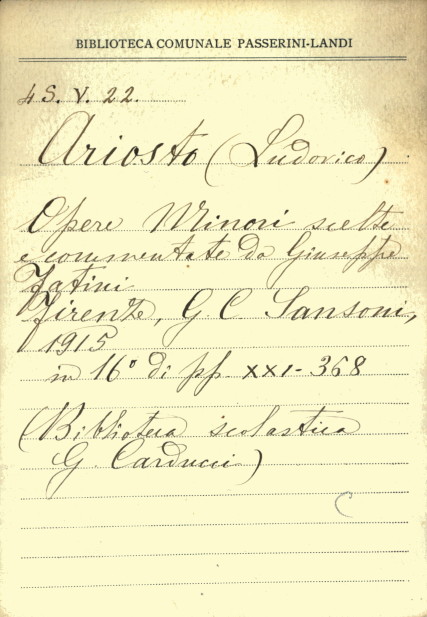 BIBLIOTECA COMUNALE PASSERINI-LANDI
4 S. V. 22.
Ariosto (Ludovico)
Opere Minori scelte
e commentate da Giuseppe
Fatini
Firenze, G. C. Sansoni,
1915
in 16° di pp. XXI-368
(Biblioteca scolastica
G. Carducci)
C